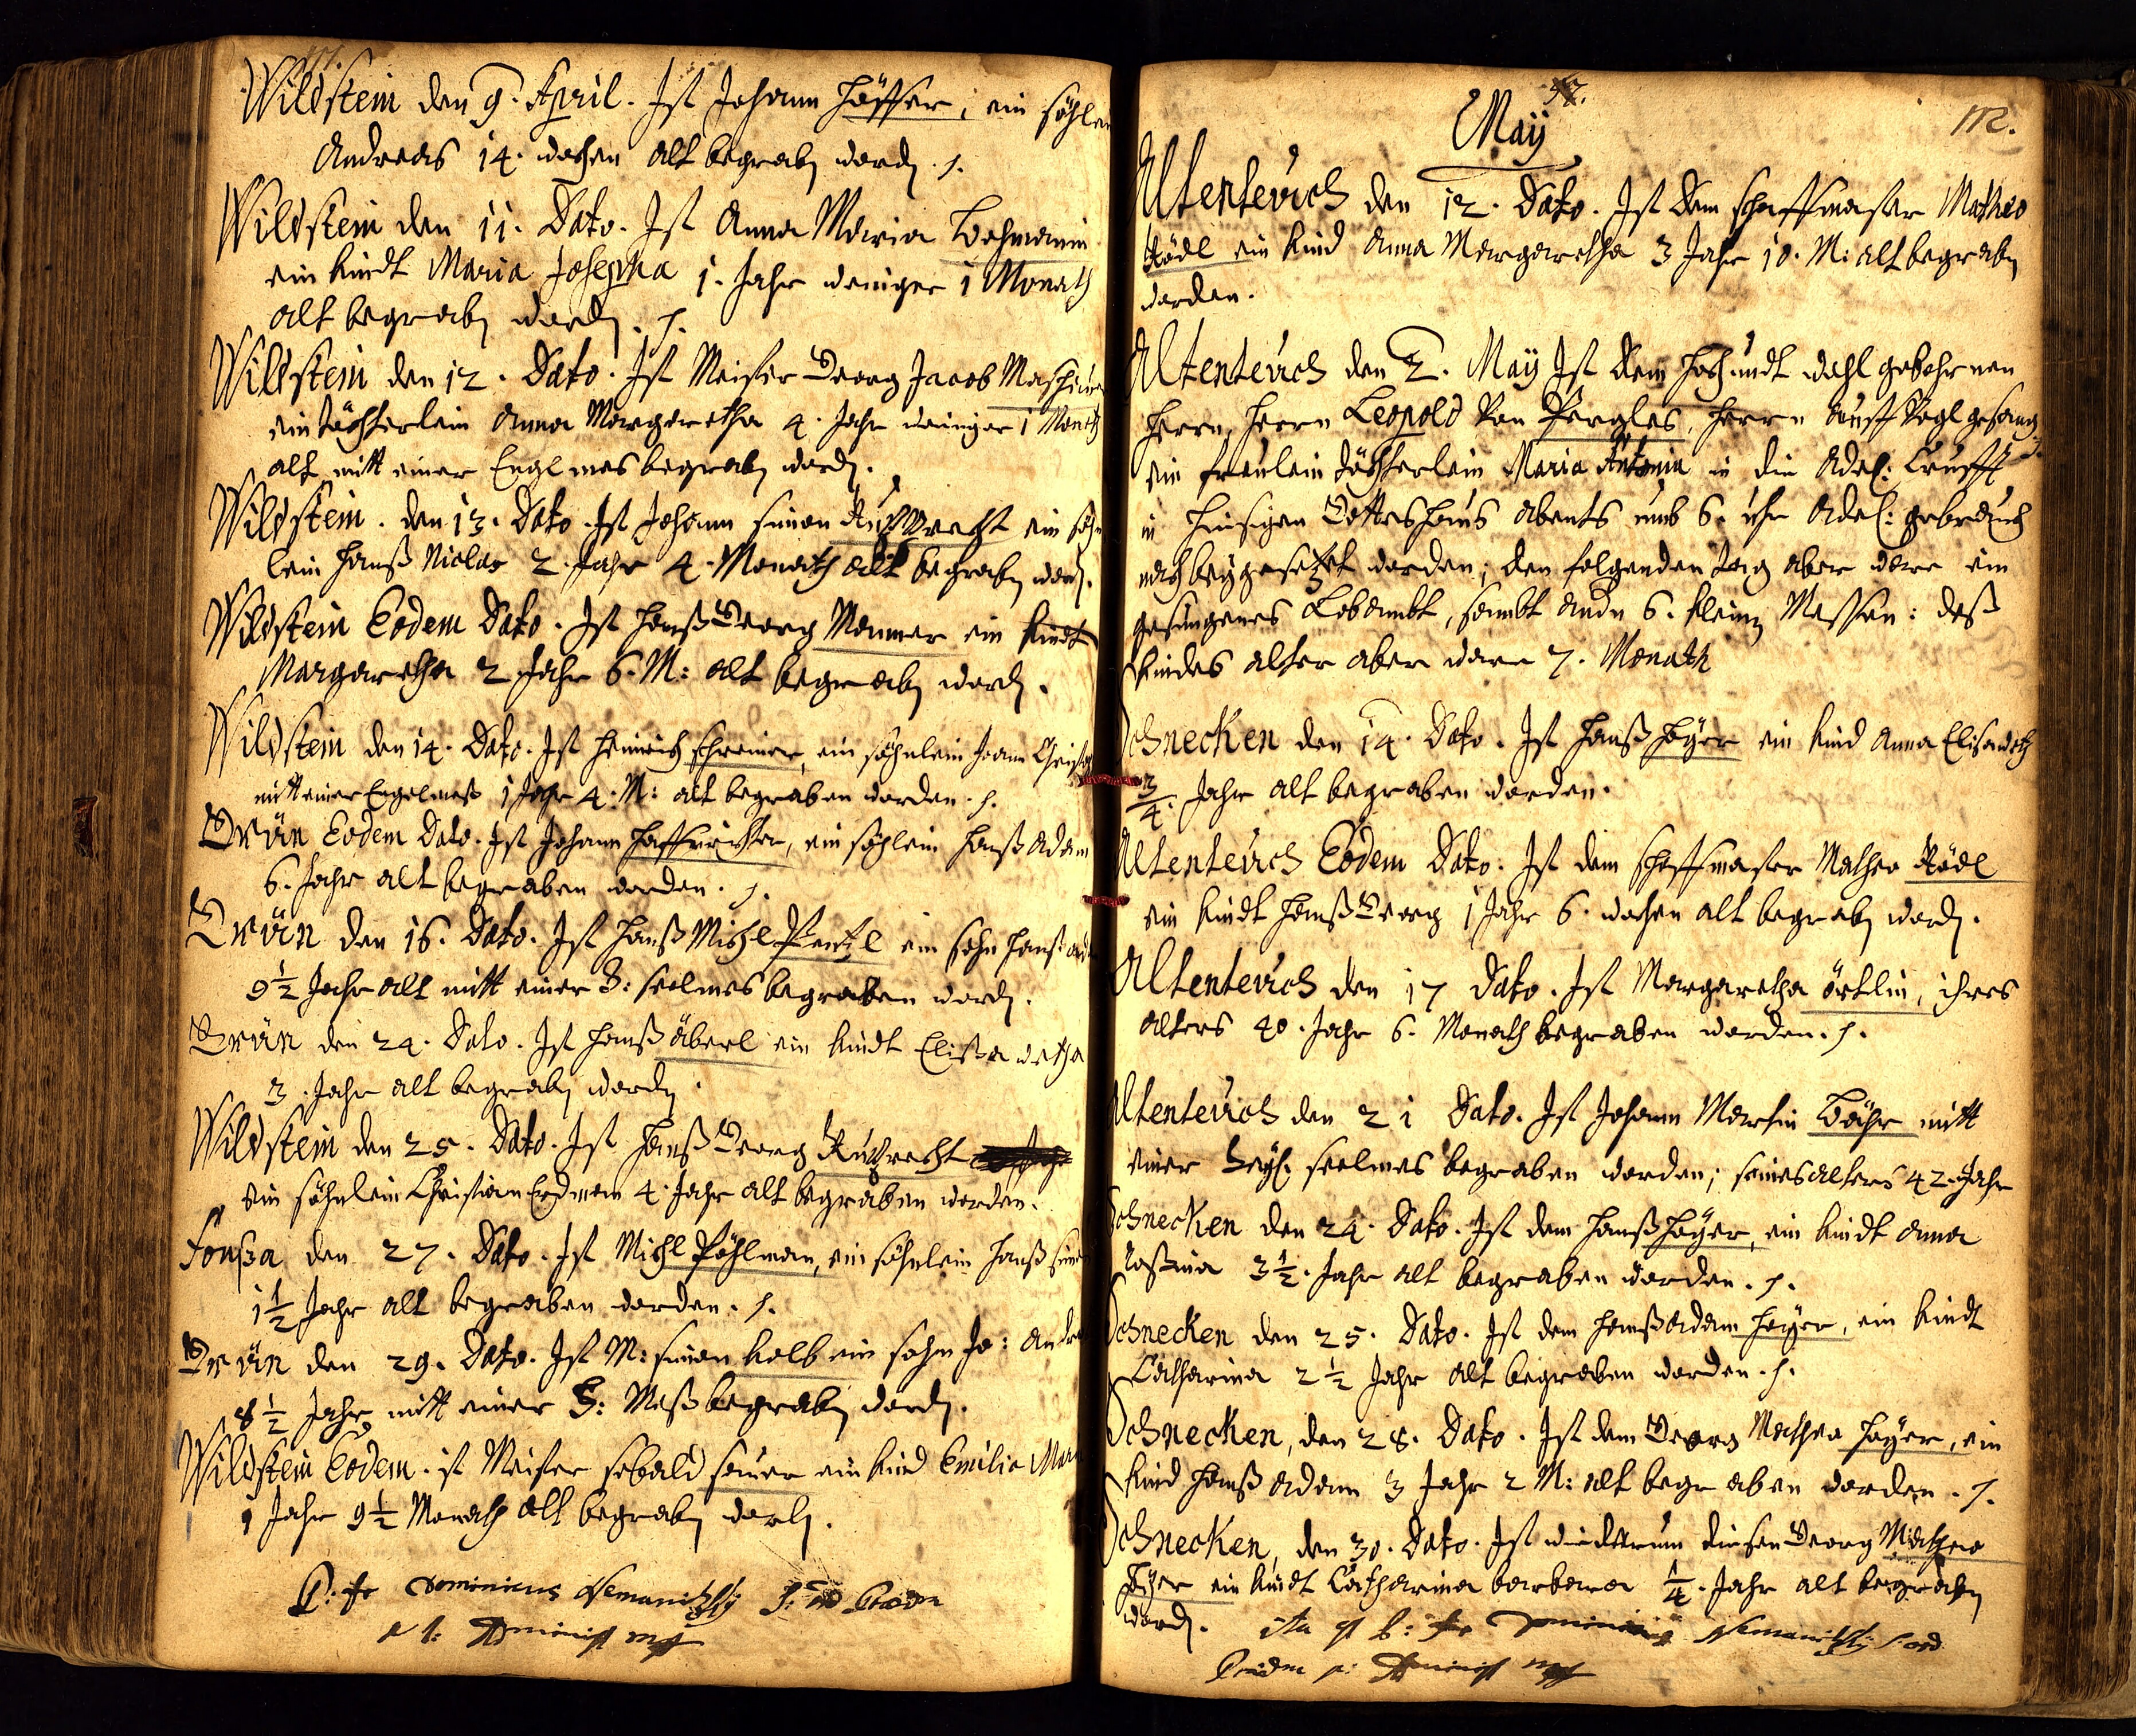 Wildstein den 9. April. Ist Johann Höffer, ein söhlein
Andreas 14. wochen alt begrabn wordn.
Wildstein den 11. Dato. Ist Anna Maria Lochmanin
ein kindt Maria Josepha 1. Jahr weniger 1 Monath
alt begrabn wordn.
Wildstein den 12. Dato. Ist Meister Georg Jacob
ein töchterlein Anna Margaretha 4. Jahr weniger 1 Month
alt mitt einer Engl mes begrabn wordn.
Wildstein. den 13. Dato. Ist Johann simon Ruebrecht ein söhn
lein Hanß Niclas 2. Jahr 4. Monath alt begrabn wordn.
Wildstein Eodem Dato. Ist Hanß Georg Monner ein kindt
Margaretha 2 Jahr 6. M: alt begrabn wordn.
Wildstein den 14. Dato. Ist Heinrich schreiner, ein söhnlein
mitt einer Engelmeß 1 Jahr 4. M: alt begraben worden.
Grün Eodem Dato. Ist Johann ein söhlein Hanß Adam
6. Jahr alt begraben worden.
Grün den 16. Dato. Ist Hanß Michl Pentzl ein sohn Hanß
9 1/2 Jahr alt mitt einer H: seelmes begraben wordn.
Grün den 24. Dato. Ist Hanß äberl ein kindt Elisawetha
3. Jahr alt begrabn wordn.
Wildstein den 25. Dato. Ist Hanß Georg Ruebrecht
ein söhnlein Christian Erdmon 4. Jahr alt begraben worden.
Fonsa den 27. Dato. Ist Michl Pöhlman, ein söhnlein Hanß
1 1/2 Jahr alt begraben worden.
Grün den 29. Dato. Ist M: simon kolb ein sohn Jo:
8 1/2 Jahr mitt einer H: Meß begrabn wordn.
Wildstein Eodem. ist Meister sebald saurer ein kind Emilia
1 Jahr 9 1/2 Monath alt begrabn wordn.
P: fr Dominicus
112.
May
Altenteich den 12. Dato. Ist dem schaffmaster Matheo
Rödl ein kind Anna Margaretha 3 Jahr 10. M: alt begrabn
worden.
Altenteich den 2. May Ist dem Hoch undt wohl gebohrnen
Herrn, Herrn Leopold von Pergles, Herrn auff
ein freulein töchterlein Maria Antonia in die Adel: Crufft
in hiesigen Gotteshaus abents umb 6. uhr Adel: gebrauch
nach beygesetzet worden; den folgenden tag aber ware ein
gesungenes Lobambt, sambt andn 6. kleinn Messen: deß
kindes alter aber ware 7. Monath
Schnecken den 14. Dato. Ist Hanß Höyer ein kind Anna Elisawetha
3/4. Jahr alt begraben worden.
Altenteich Eodem Dato. Ist dem schaffmaster Matheo Rödl
ein kindt Hanß Georg 1 Jahr 6. wochen alt begrabn wordn.
Altenteich den 17 Dato. Ist Margaretha örtlin, ihres
alters 40. Jahr 6. Monath begraben worden.
Altenteich den 21 Dato. Ist Johann Martin Böhr mitt
einer Heyl: seelmes begraben worden; seines alters 42. Jahr
Schnecken den 24. Dato. Ist dem Hanß Höyer, ein kindt Anna
Rosina 3 1/2. Jahr alt begraben worden.
Schnecken den 25. Dato. Ist dem Hanß Adam Höyer, ein kindt
Catharina 2 1/2 Jahr alt begraben worden.
Schnecken, den 28. Dato. Ist dem Georg Matheo Höyer, ein
kind Hanß Adam 3 Jahr 2 M: alt begraben worden.
Schnecken, den 30. Dato. Ist wiederum diesen Georg Matheo
Höyer ein kindt Catharina barbara 1/4. Jahr alt begrabn
wordn. ita est P: fr Dominicus